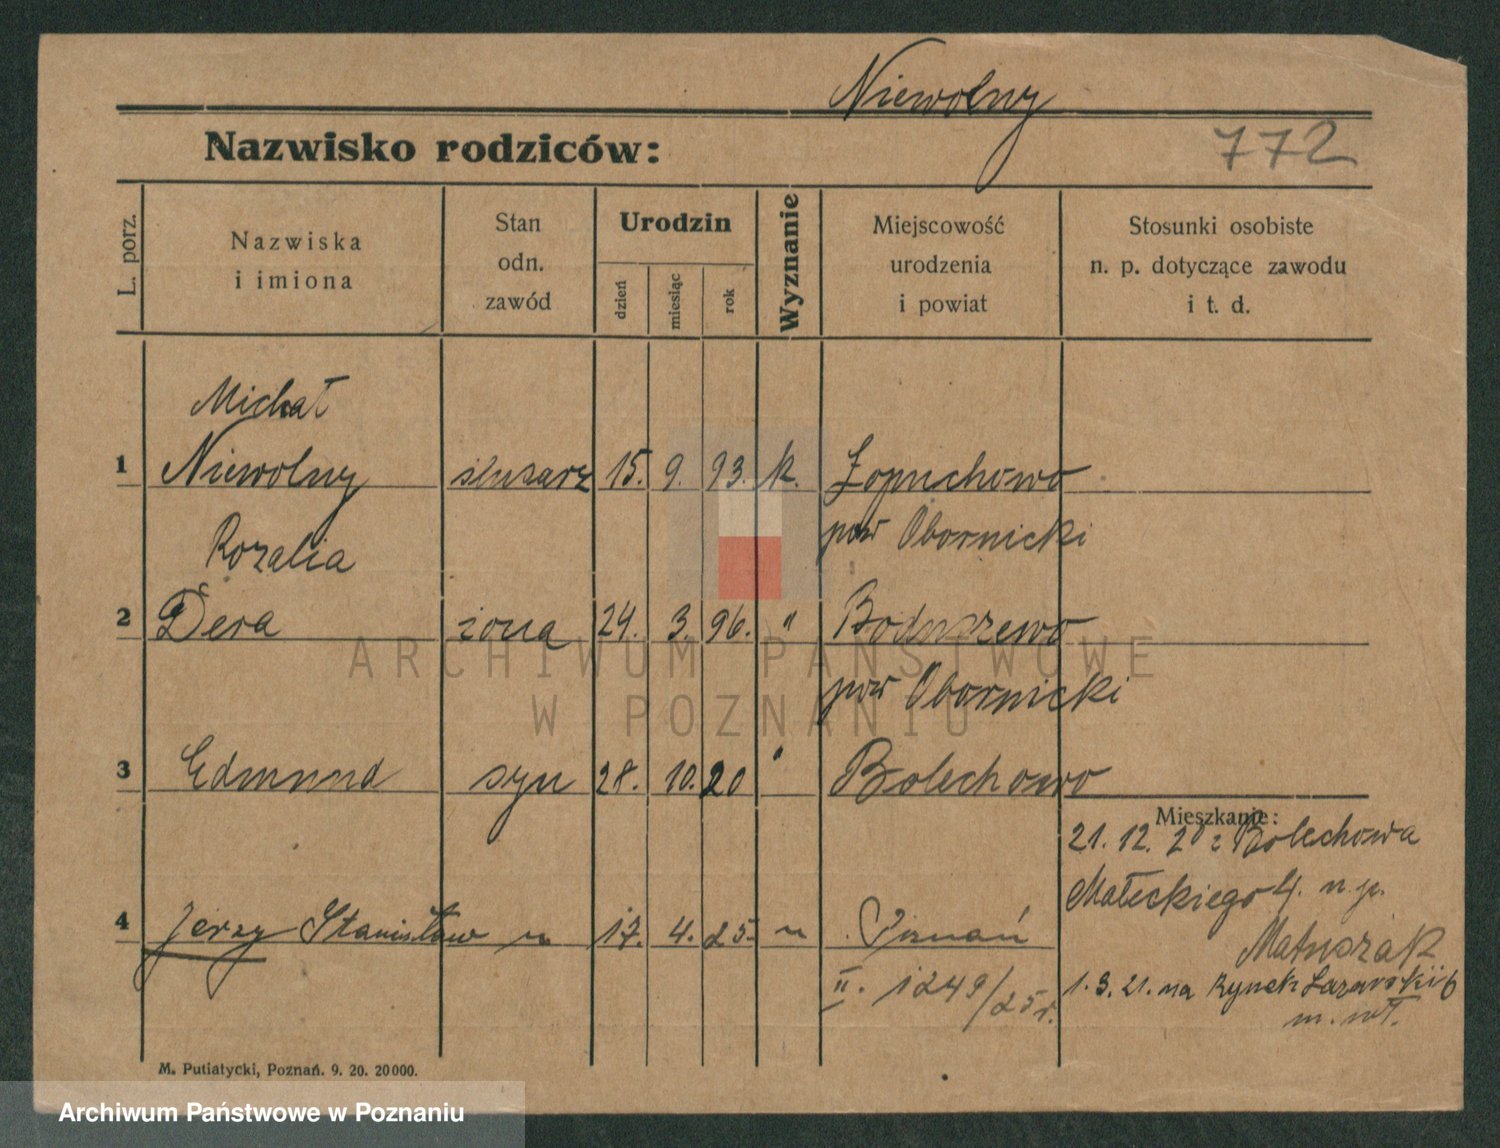 Niewolny
Nazwisko rodziców:
772
L. porz.
Nazwiska
i imiona
Stan
odn.
zawód
Urodzin
dzień
miesiąc
rok
Wyznanie
Miejscowość
urodzenia
i powiat
Stosunki osobiste
n. p. dotyczące zawodu
i t. d.
Michał
1 Niewolny ślusarz 15. 9. 93. k. Łopuchowo
pow Obornicki
Rozalia
2 Dera żona 24. 3. 96. " Boduszewo
pow Obornicki
3 Edmund syn 28. 10. 20 " Bolechowo
Mieszkanie:
21. 12. 20 z Bolechowa
Małeckiego 4. n. p.
Matuszak
4 Jerzy Stanisław " 17. 4. 25. " Poznań
II. 1249/25 r.
1. 3. 21. na Rynek Łazarski 6
m. wł.
M. Putiatycki, Poznań. 9. 20. 20000.
ARCHIWUM PAŃSTWOWE
W POZNANIU
Archiwum Państwowe w Poznaniu